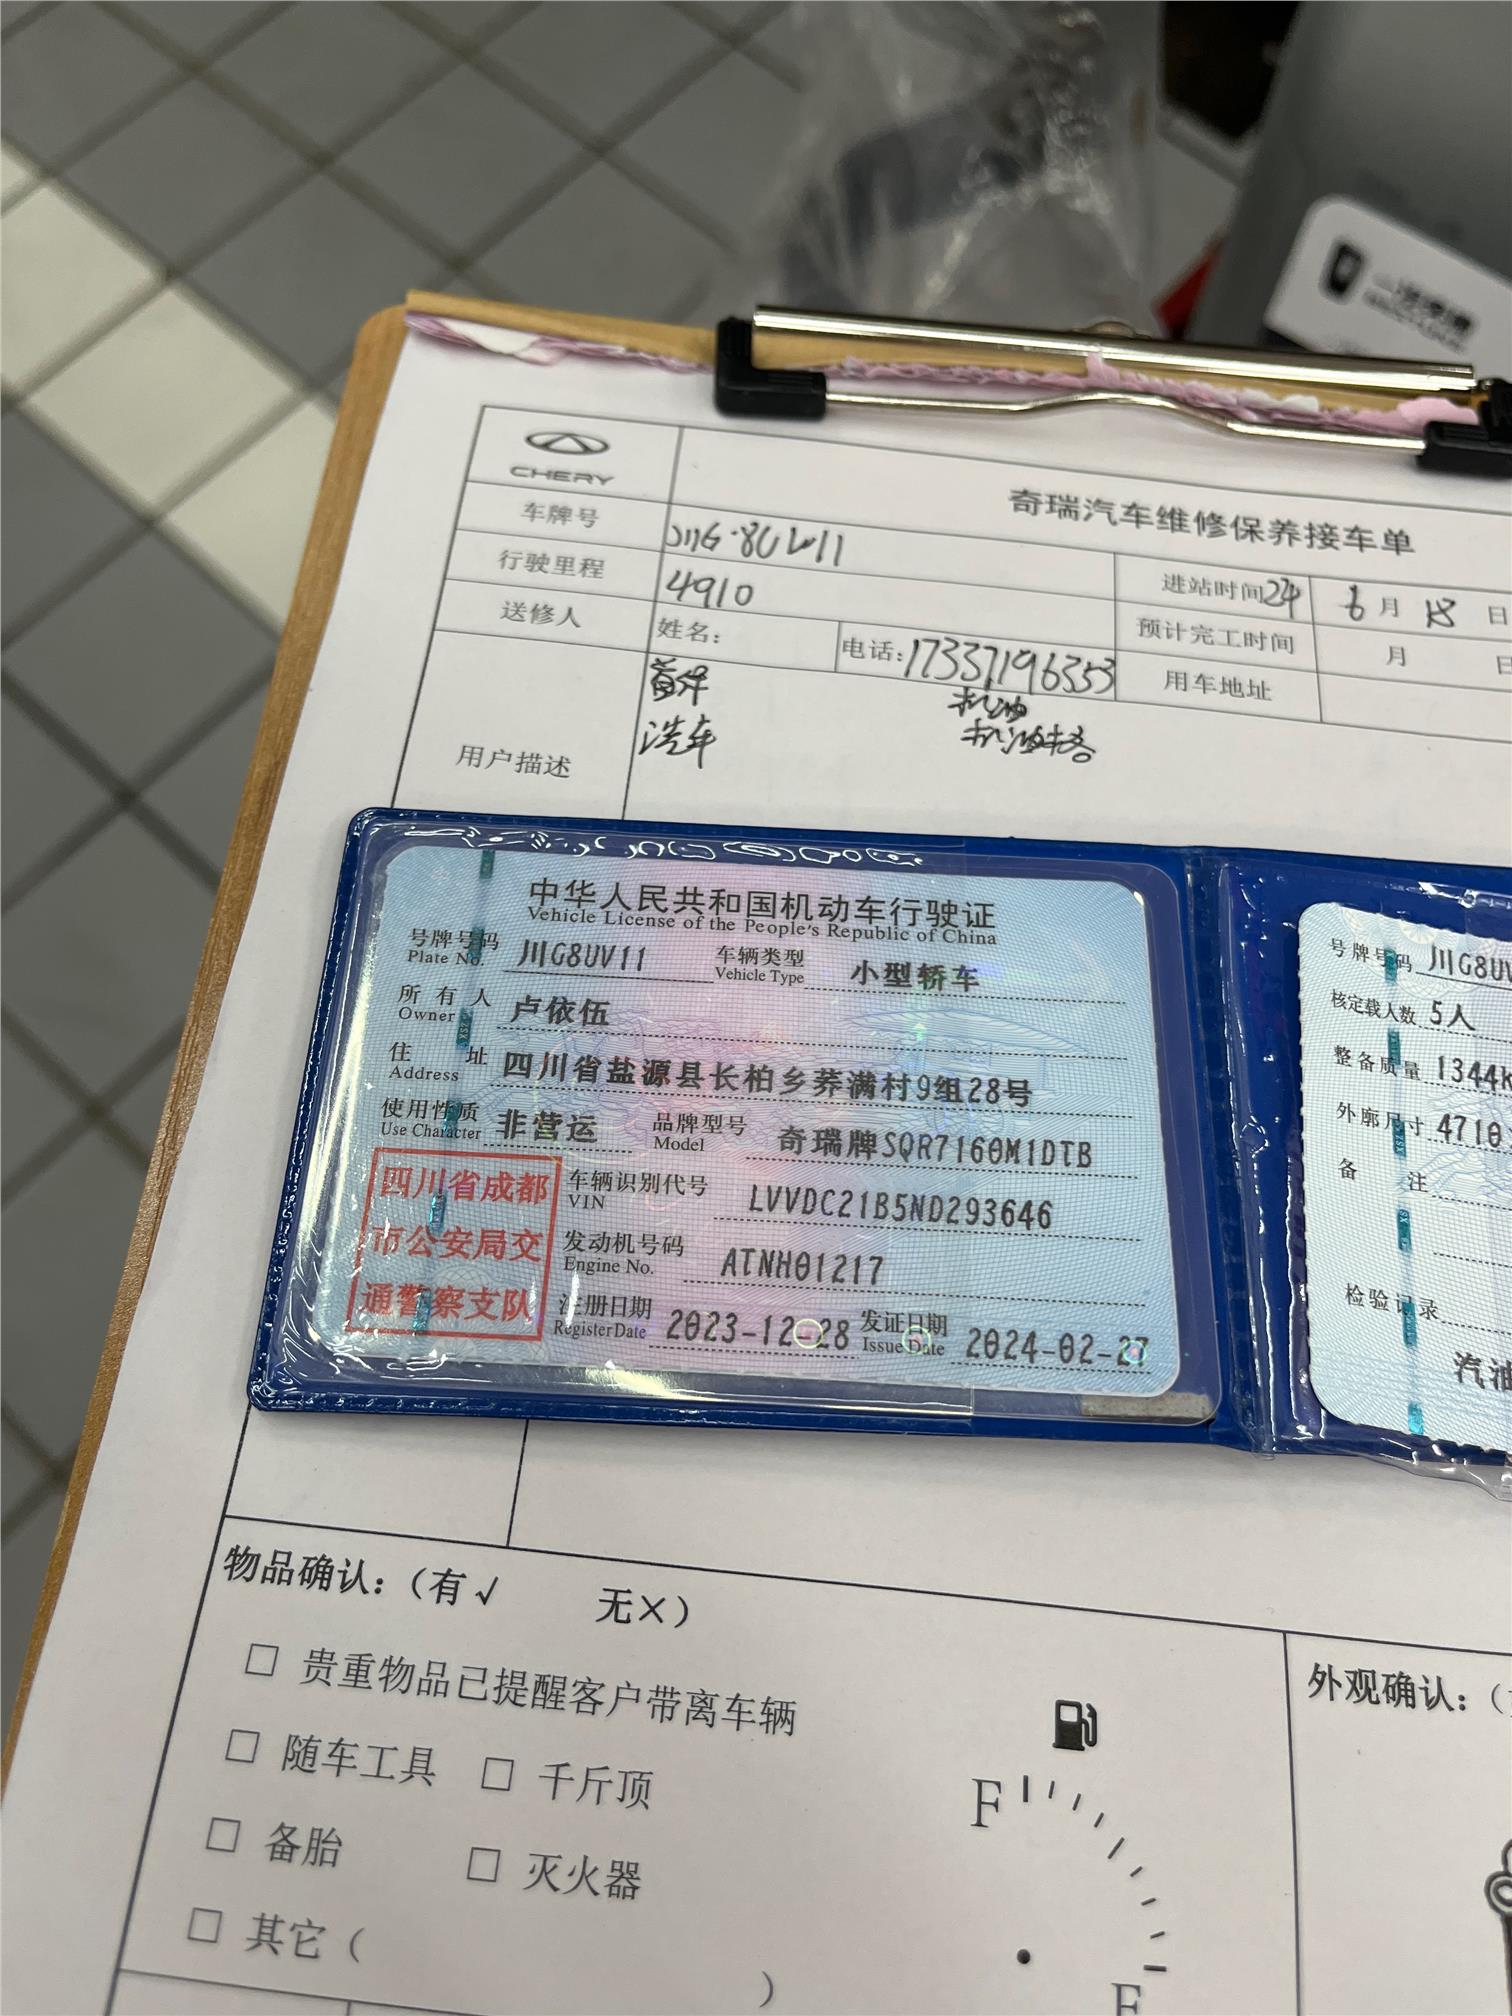 CHERY
奇瑞汽车维修保养接车单
车牌号 川G·8UV11
行驶里程 4910 进站时间 24 6月 18 日
送修人 姓名: 电话:17337196353 预计完工时间 月 日
用车地址
用户描述
首保 机油
洗车 机油格
中华人民共和国机动车行驶证
Vehicle License of the People's Republic of China
号牌号码 川G8UV11 车辆类型 小型轿车
Plate No. Vehicle Type
所有人 卢依伍
Owner
住址 四川省盐源县长柏乡莽满村9组28号
Address
使用性质 非营运 品牌型号 奇瑞牌SQR7160M1DTB
Use Character Model
四川省成都
市公安局交
通警察支队
车辆识别代号 LVVDC21B5ND293646
VIN
发动机号码 ATNH01217
Engine No.
注册日期 2023-12-28 发证日期 2024-02-27
Register Date Issue Date
号牌号码 川G8UV
核定载人数 5人
整备质量 1344K
外廓尺寸 4710
备注
检验记录
汽油
物品确认:(有√ 无×)
□ 贵重物品已提醒客户带离车辆
□ 随车工具 □ 千斤顶
□ 备胎 □ 灭火器
□ 其它( )
F
E
外观确认:(